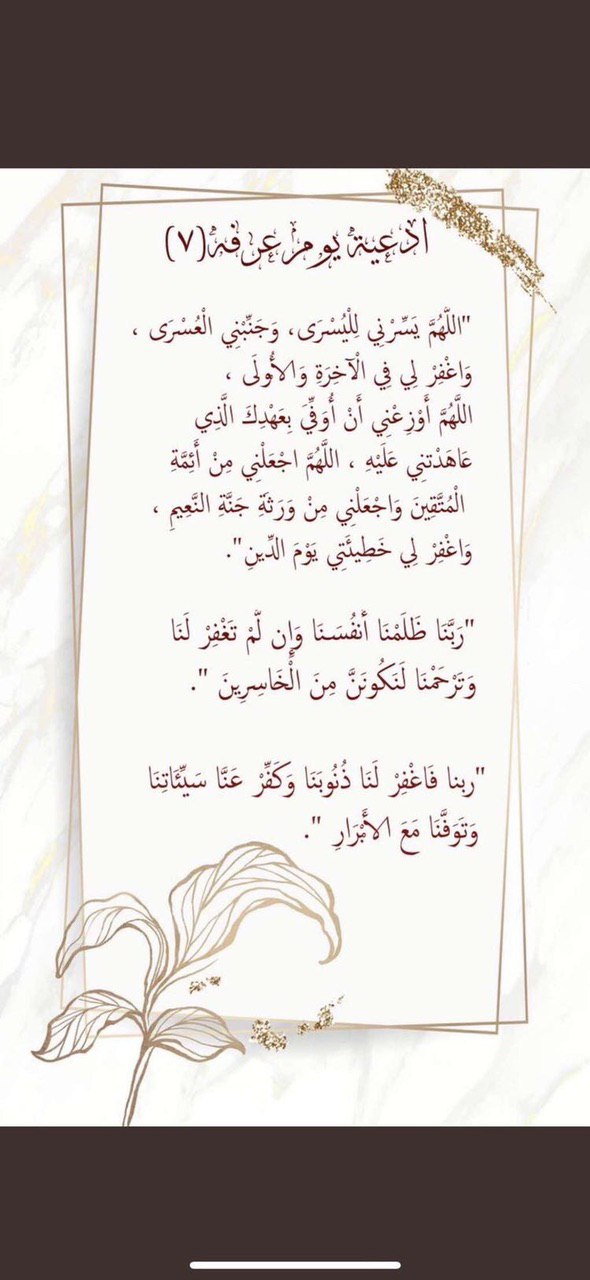 ادعية يوم عرفه(٧)
"اللَّهُمَّ يَسِّرْنِي لِلْيُسْرَى، وَجَنِّبْنِي الْعُسْرَى ،
وَاغْفِرْ لِي فِي الْآخِرَةِ وَالأُولَى ،
اللَّهُمَّ أَوْزِعْنِي أَنْ أُوَفِّيَ بِعَهْدِكَ الَّذِي
عَاهَدْتنِي عَلَيْهِ ، اللَّهُمَّ اجْعَلْنِي مِنْ أَئِمَّةِ
الْمُتَّقِينَ وَاجْعَلْنِي مِنْ وَرَثَةِ جَنَّةِ النَّعِيمِ ،
وَاغْفِرْ لِي خَطِيئَتِي يَوْمَ الدِّينِ".
"رَبَّنَا ظَلَمْنَا أَنفُسَنَا وَإِن لَّمْ تَغْفِرْ لَنَا
وَتَرْحَمْنَا لَنَكُونَنَّ مِنَ الْخَاسِرِينَ ".
"ربنا فَاغْفِرْ لَنَا ذُنُوبَنَا وَكَفِّرْ عَنَّا سَيِّئَاتِنَا
وَتَوَفَّنَا مَعَ الأَبْرَارِ ".